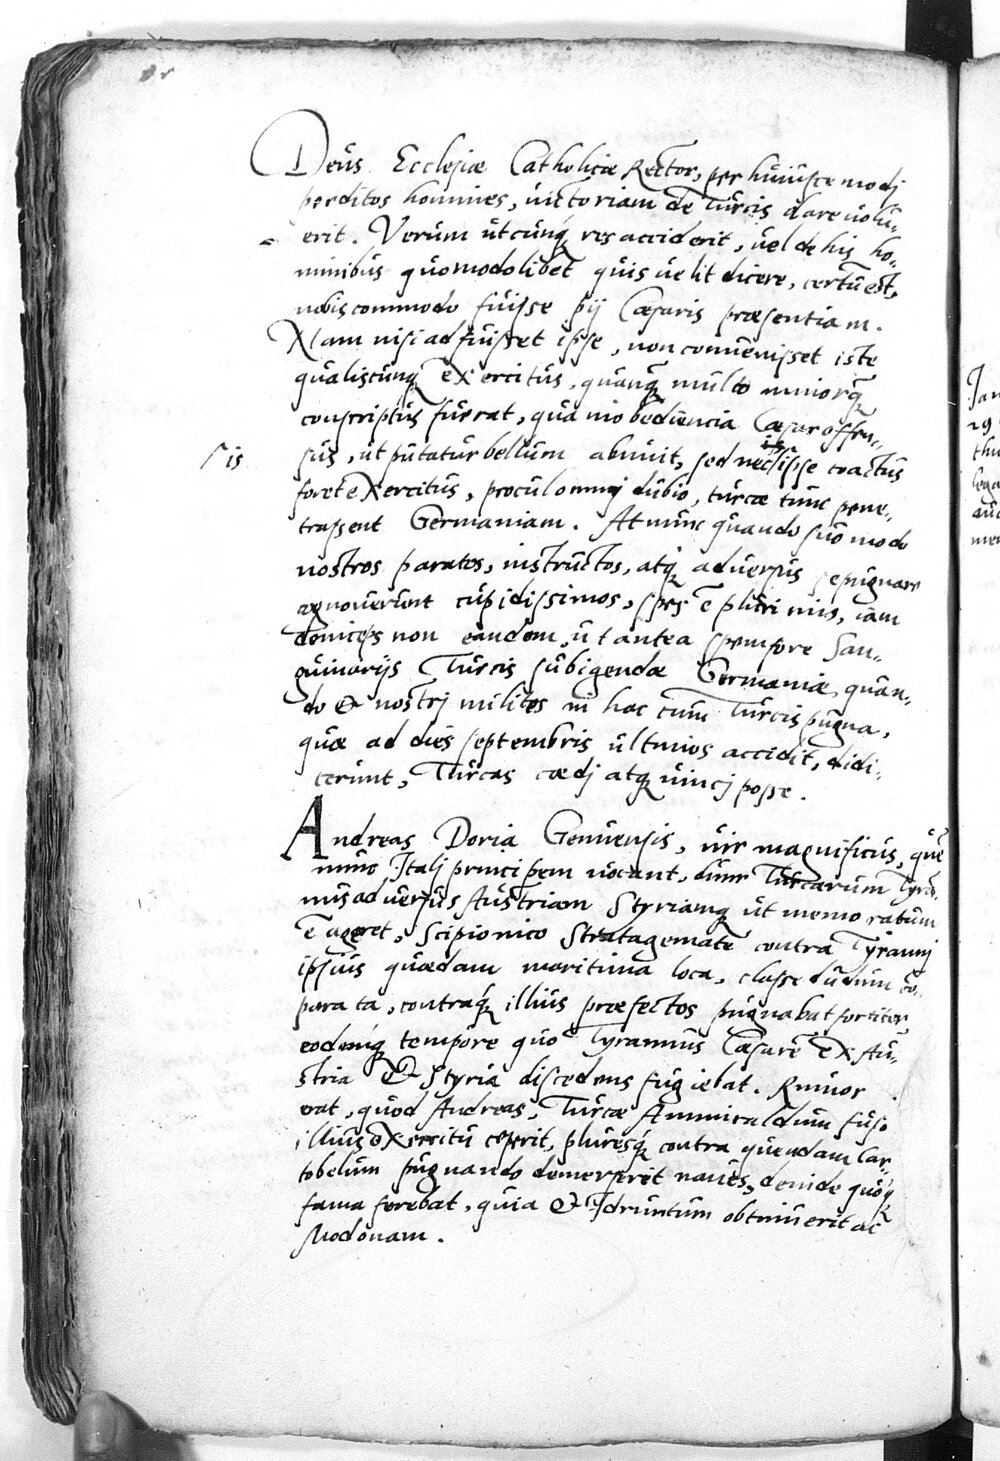 Deus Ecclesiæ Catholicæ Rector, per huiuscemodj
perditos homines, uictoriam de Turcis dare uolu-
erit. Verum utcunq́ res acciderit, uel de his ho-
minibus quomodolibet quis uelit dicere, certũ est,
nobis commodo fuisse pij Cæsaris præsentiam.
Nam nisi adfuisset ipse, non conuenisset iste
qualiscunq́ exercitus, quanq́ multo minorq́
conscriptus fuerat, qua inobediencia Cæsar offen-
sus, ut putatur bellum abiuit, sed nec ipse coactus
sis
foret exercitus, procul omnj dubio, turcæ tunc pene-
trassent Germaniam. At nunc quando suo modo
nostros paratos, instructos, atq́ aduersus se pugnare
agnouerunt cupidissimos, spes ẽ plurimis, iam
deinceps non eandem, ut antea spem fore San-
guinarijs Turcis subigendæ Germaniæ, quan-
do & nostrj milites in hac cum Turcis pugna,
quæ ad dies septembris ultimos accidit, didi-
cerunt, Turcas cædj atq́ uincj posse.
Andreas Doria Genuensis, uir magnificus, quẽ
nunc Italj principem uocant, dum Turcarum Tyrã-
nus aduersus Austriam Styriamq́ ut memoratum
ẽ ageret, Scipionico Stratagemate contra Tyrannj
ipsius quædam maritima loca, classe dudum cõ-
parata, contraq́ illius præfectos pugnabat fortiter
eodemq́ tempore quo Tyrannus Cæsarẽ ex Au-
stria & Styria discedens fugiebat. Rumor
erat, quod Andreas, Turcæ Ammiraldum fuso
illius exercitu ceperit, pluresq́ contra quendam Car-
tobelum pugnando demerserit naues, deinde quoq́
fama ferebat, quia & Idruntum obtinuerit ac
Modonam.